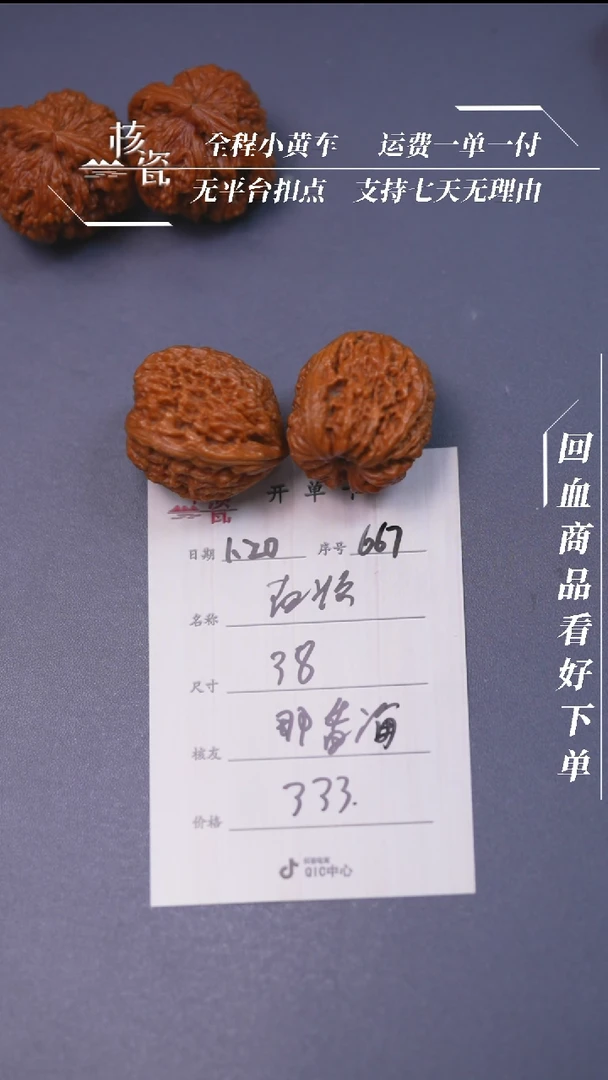 核瓷
全程小黄车 运费一单一付
无平台扣点 支持七天无理由
回血商品看好下单
瓷 开单
日期 1.20 序号 667
名称
尺寸 38
核友 那香海
价格 333.
QIC中心